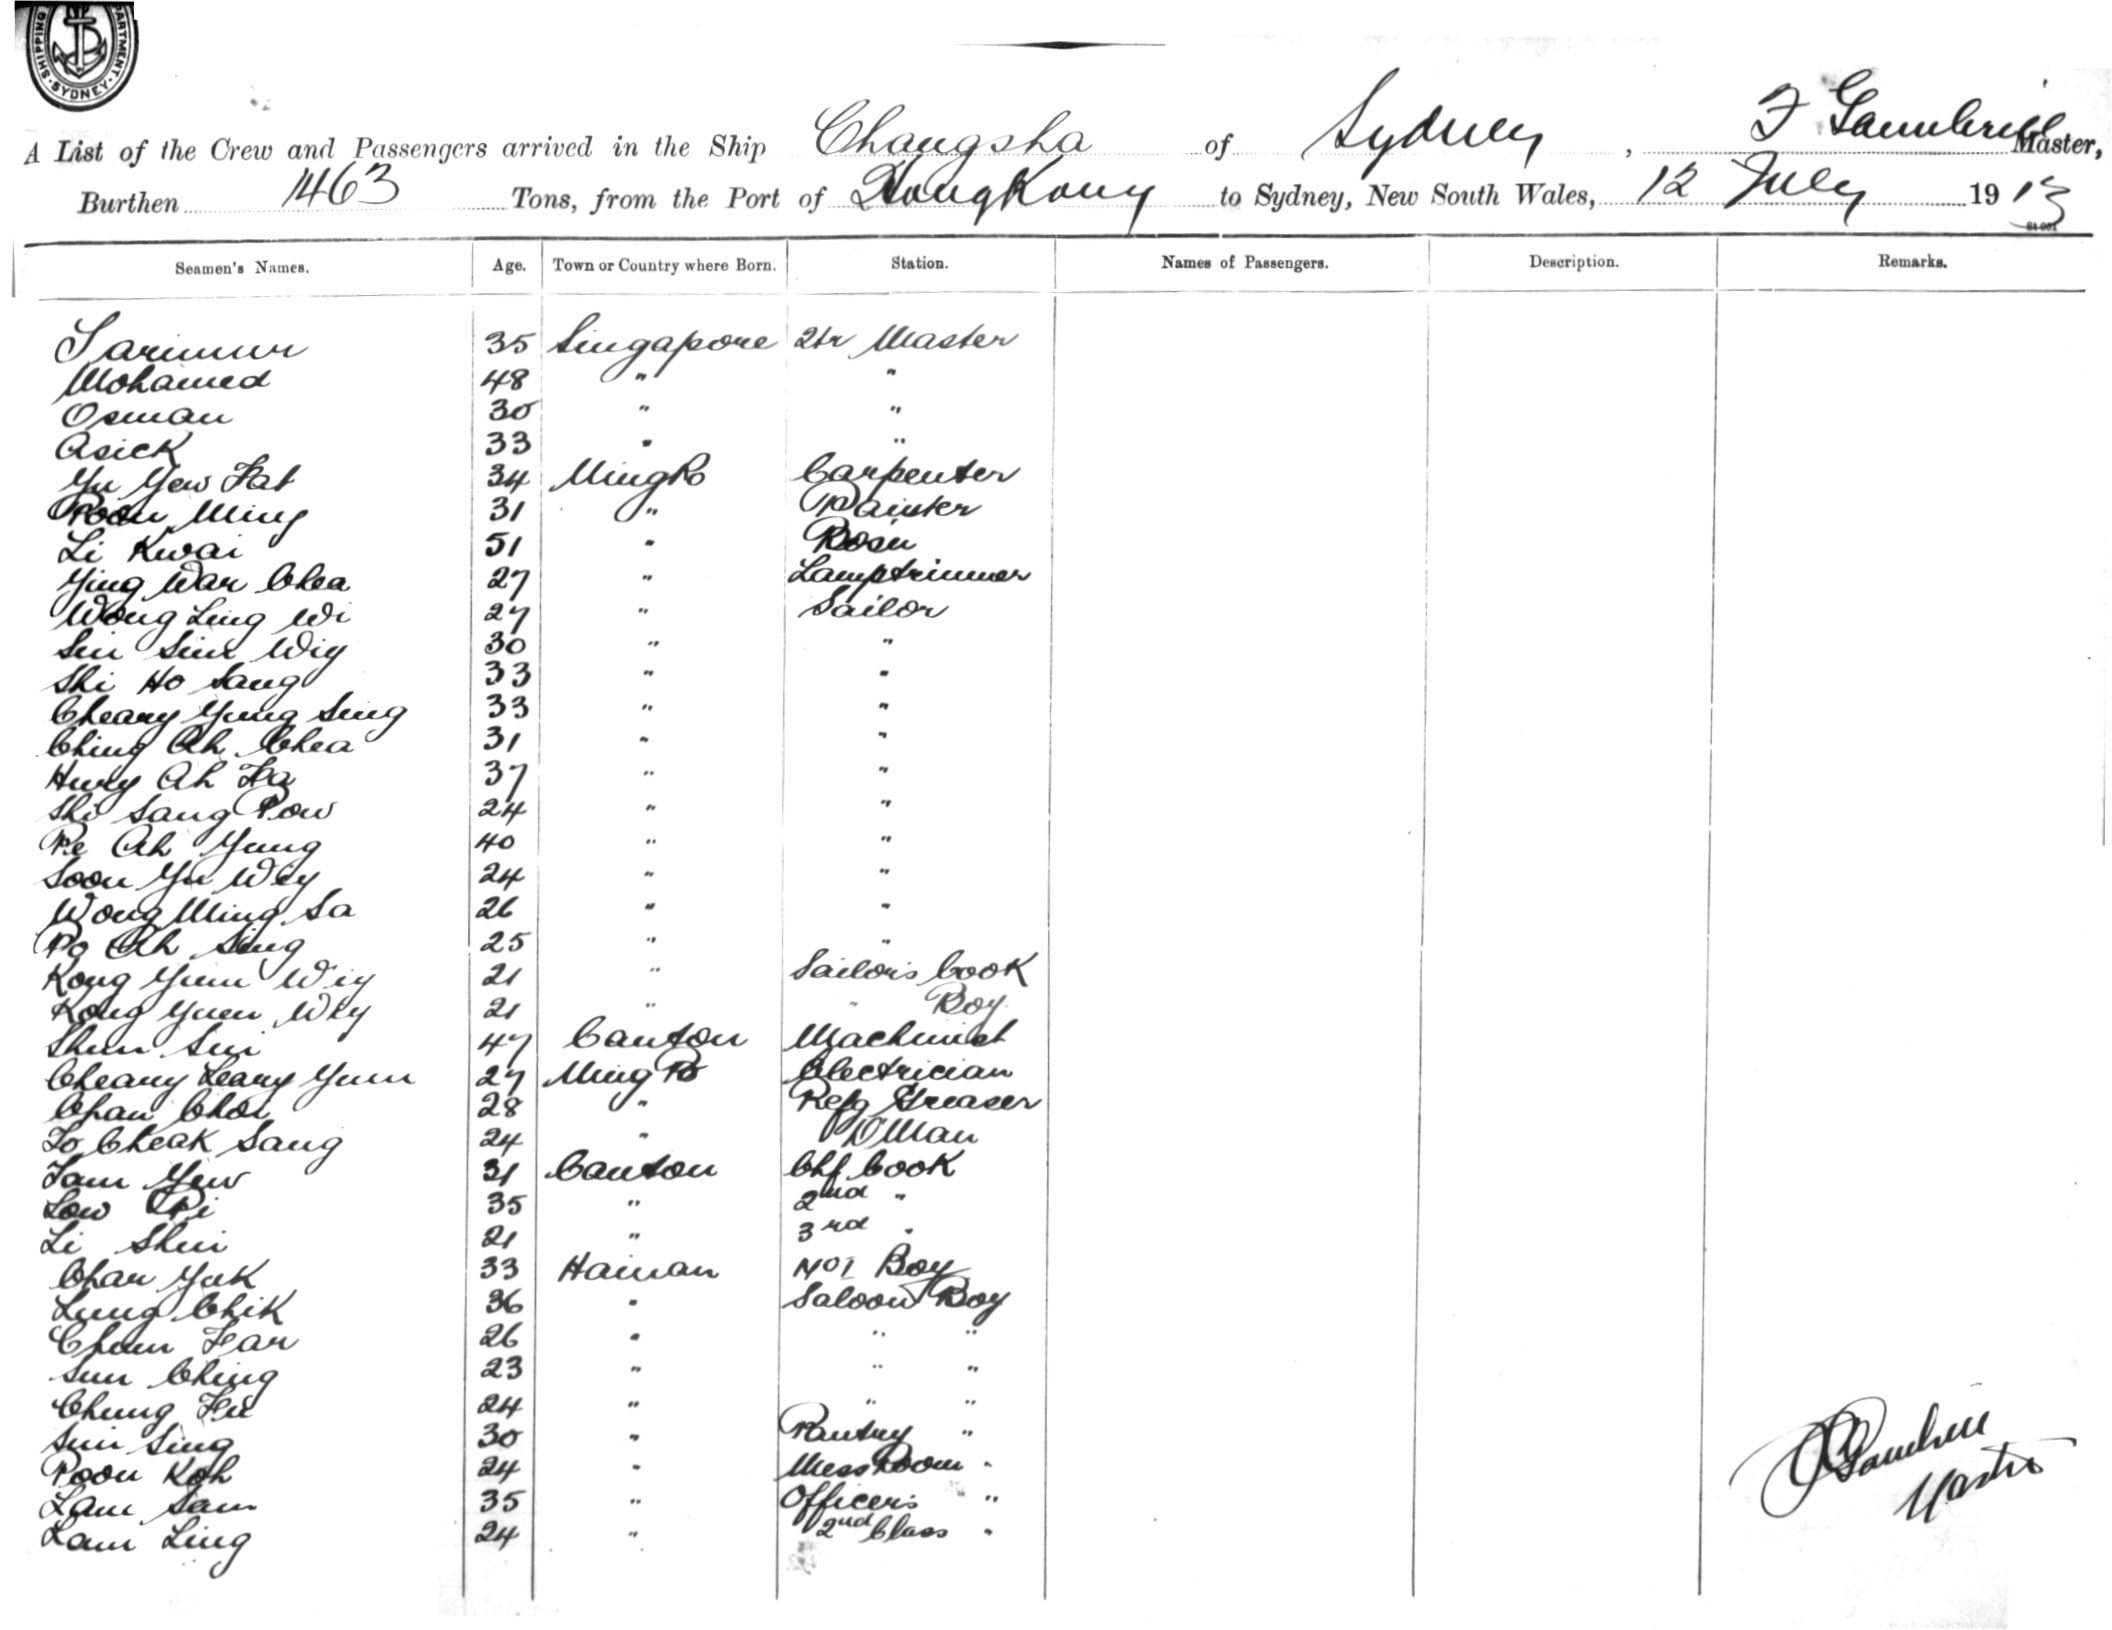 SHIPPING DEPARTMENT. SYDNEY
A List of the Crew and Passengers arrived in the Ship Changsha of Sydney, F Gambrill Master,
Burthen 1463 Tons, from the Port of HongKong to Sydney, New South Wales, 12 July 1913
Seamen's Names. Age. Town or Country where Born. Station. Names of Passengers. Description. Remarks.
35 Singapore Qtr Master
Mohamed 48 " "
Osman 30 " "
Asick 33 " "
Yu Yew Fat 34 NingPo Carpenter
Poon Ming 31 " Painter
Li Kwai 51 " Bosn
Ying Wan Chea 27 " Lamptrimmer
Wong Ling Wi 27 " Sailor
Sin Sing Wig 30 " "
Shi Ho Sang 33 " "
Cheang Yung Sing 33 " "
Ching Ah Chea 31 " "
Ah Fa 37 " "
Shi Sang Pow 24 " "
Pe Ah Yung 40 " "
Soon Yu Wey 24 " "
Wong Ming Sa 26 " "
Po Ah Sing 25 " "
Kong Yuen Wiy 21 " Sailors Cook
Kong Yuen Wey 21 " " Boy
Shun Sui 47 Canton Machinist
Cheang Leang Yuen 27 Ning Po Electrician
Chan Choi 28 " Refg Greaser
To Cheak Sang 24 " D'Man
Tam Yew 31 Canton Chf Cook
Low Pi 35 " 2nd "
Li Shui 21 " 3rd "
Chan Yuk 33 Hainan No1 Boy
Lung Chik 36 " Saloon Boy
Chun Far 26 " " "
Sun Ching 23 " " "
Chung Fu 24 " " "
Sin Sing 30 " Pantry "
Poon Koh 24 " Mess Room "
Lam Sam 35 " Officers "
Lam Ling 24 " 2nd Class "
Gambrill
Master